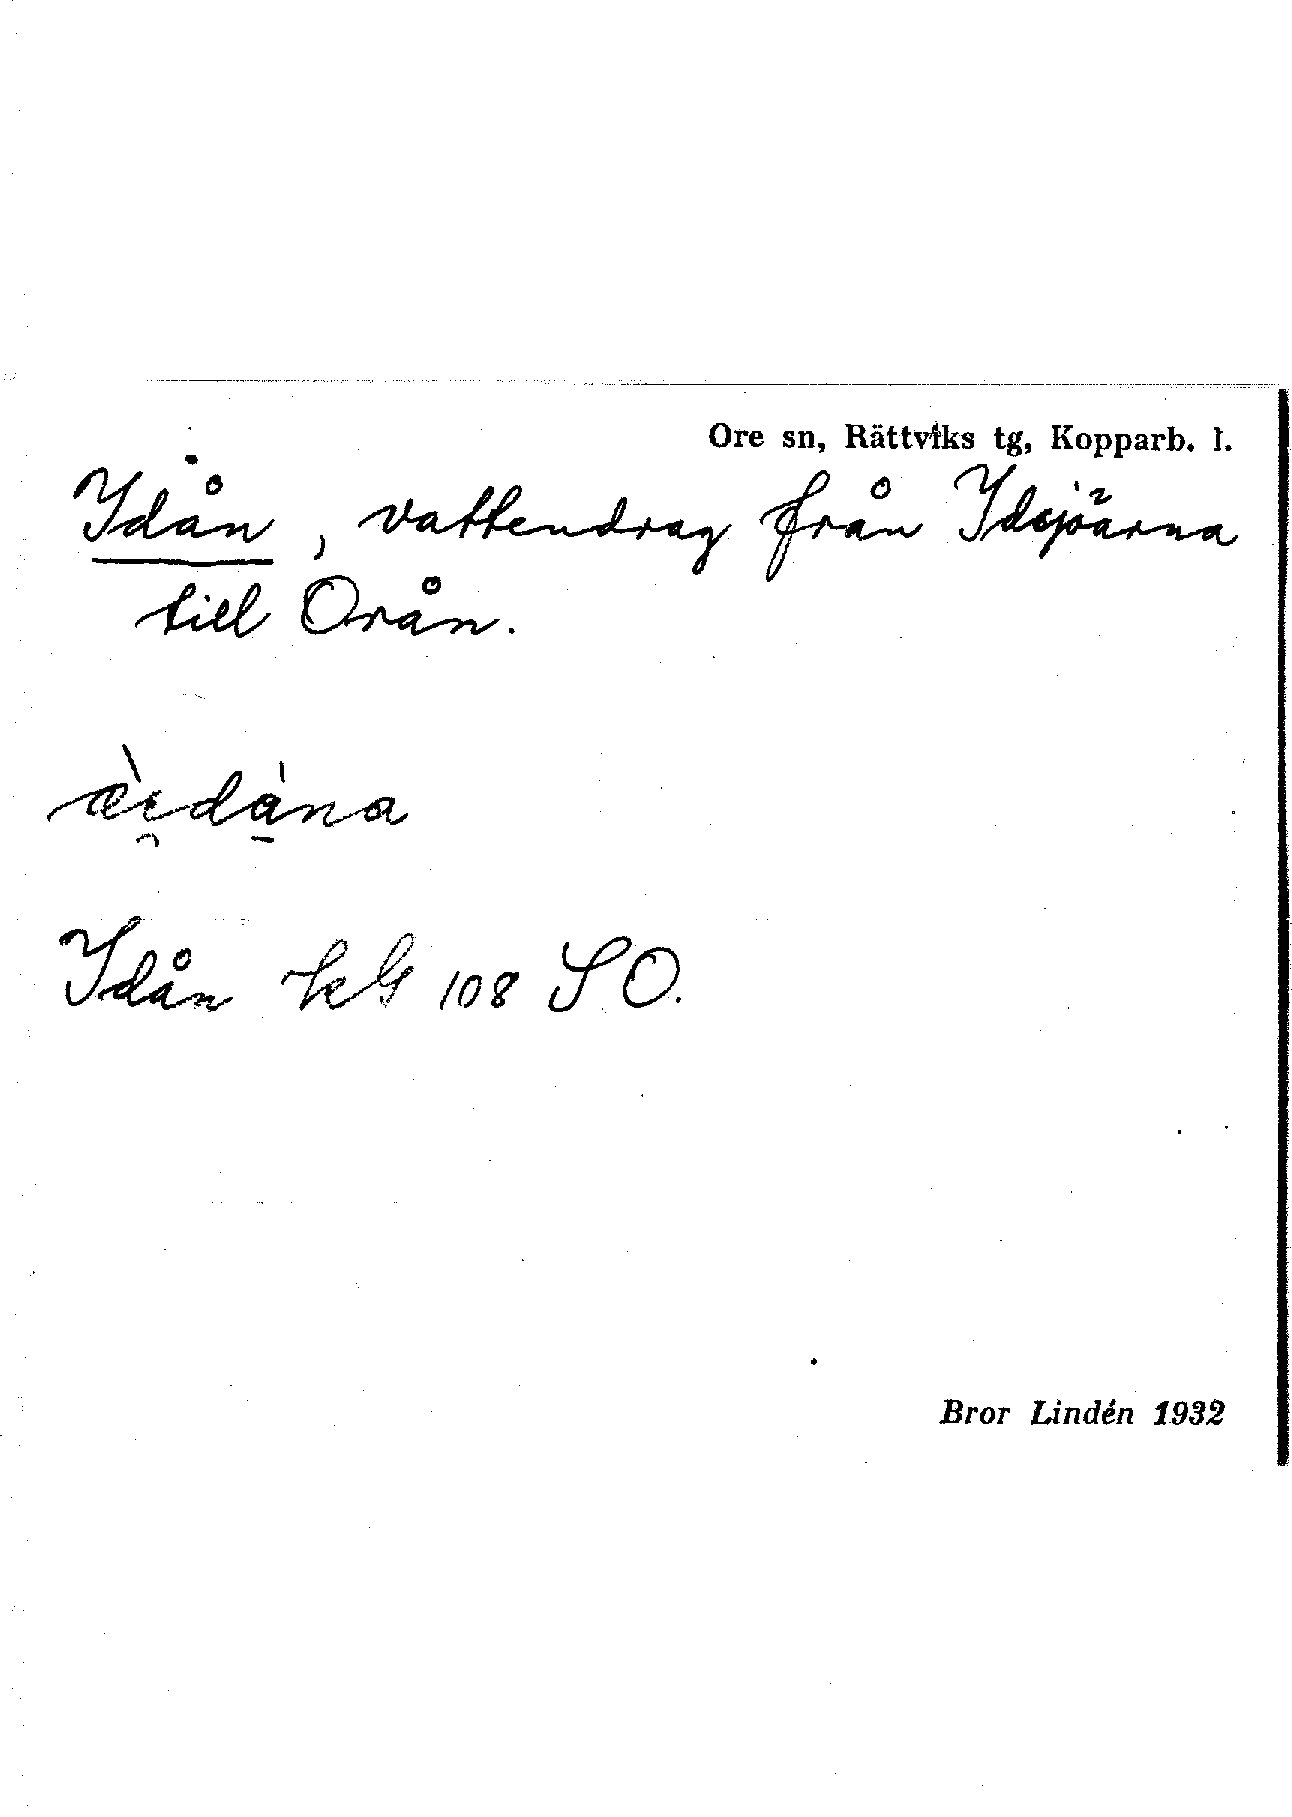 Ore sn, Rättviks tg, Kopparb. l.
Idån, vattendrag från Idsjöarna
till Orån.
æ̀i̯dà̱na
Idån kbl 108 SO.
Bror Lindén 1932